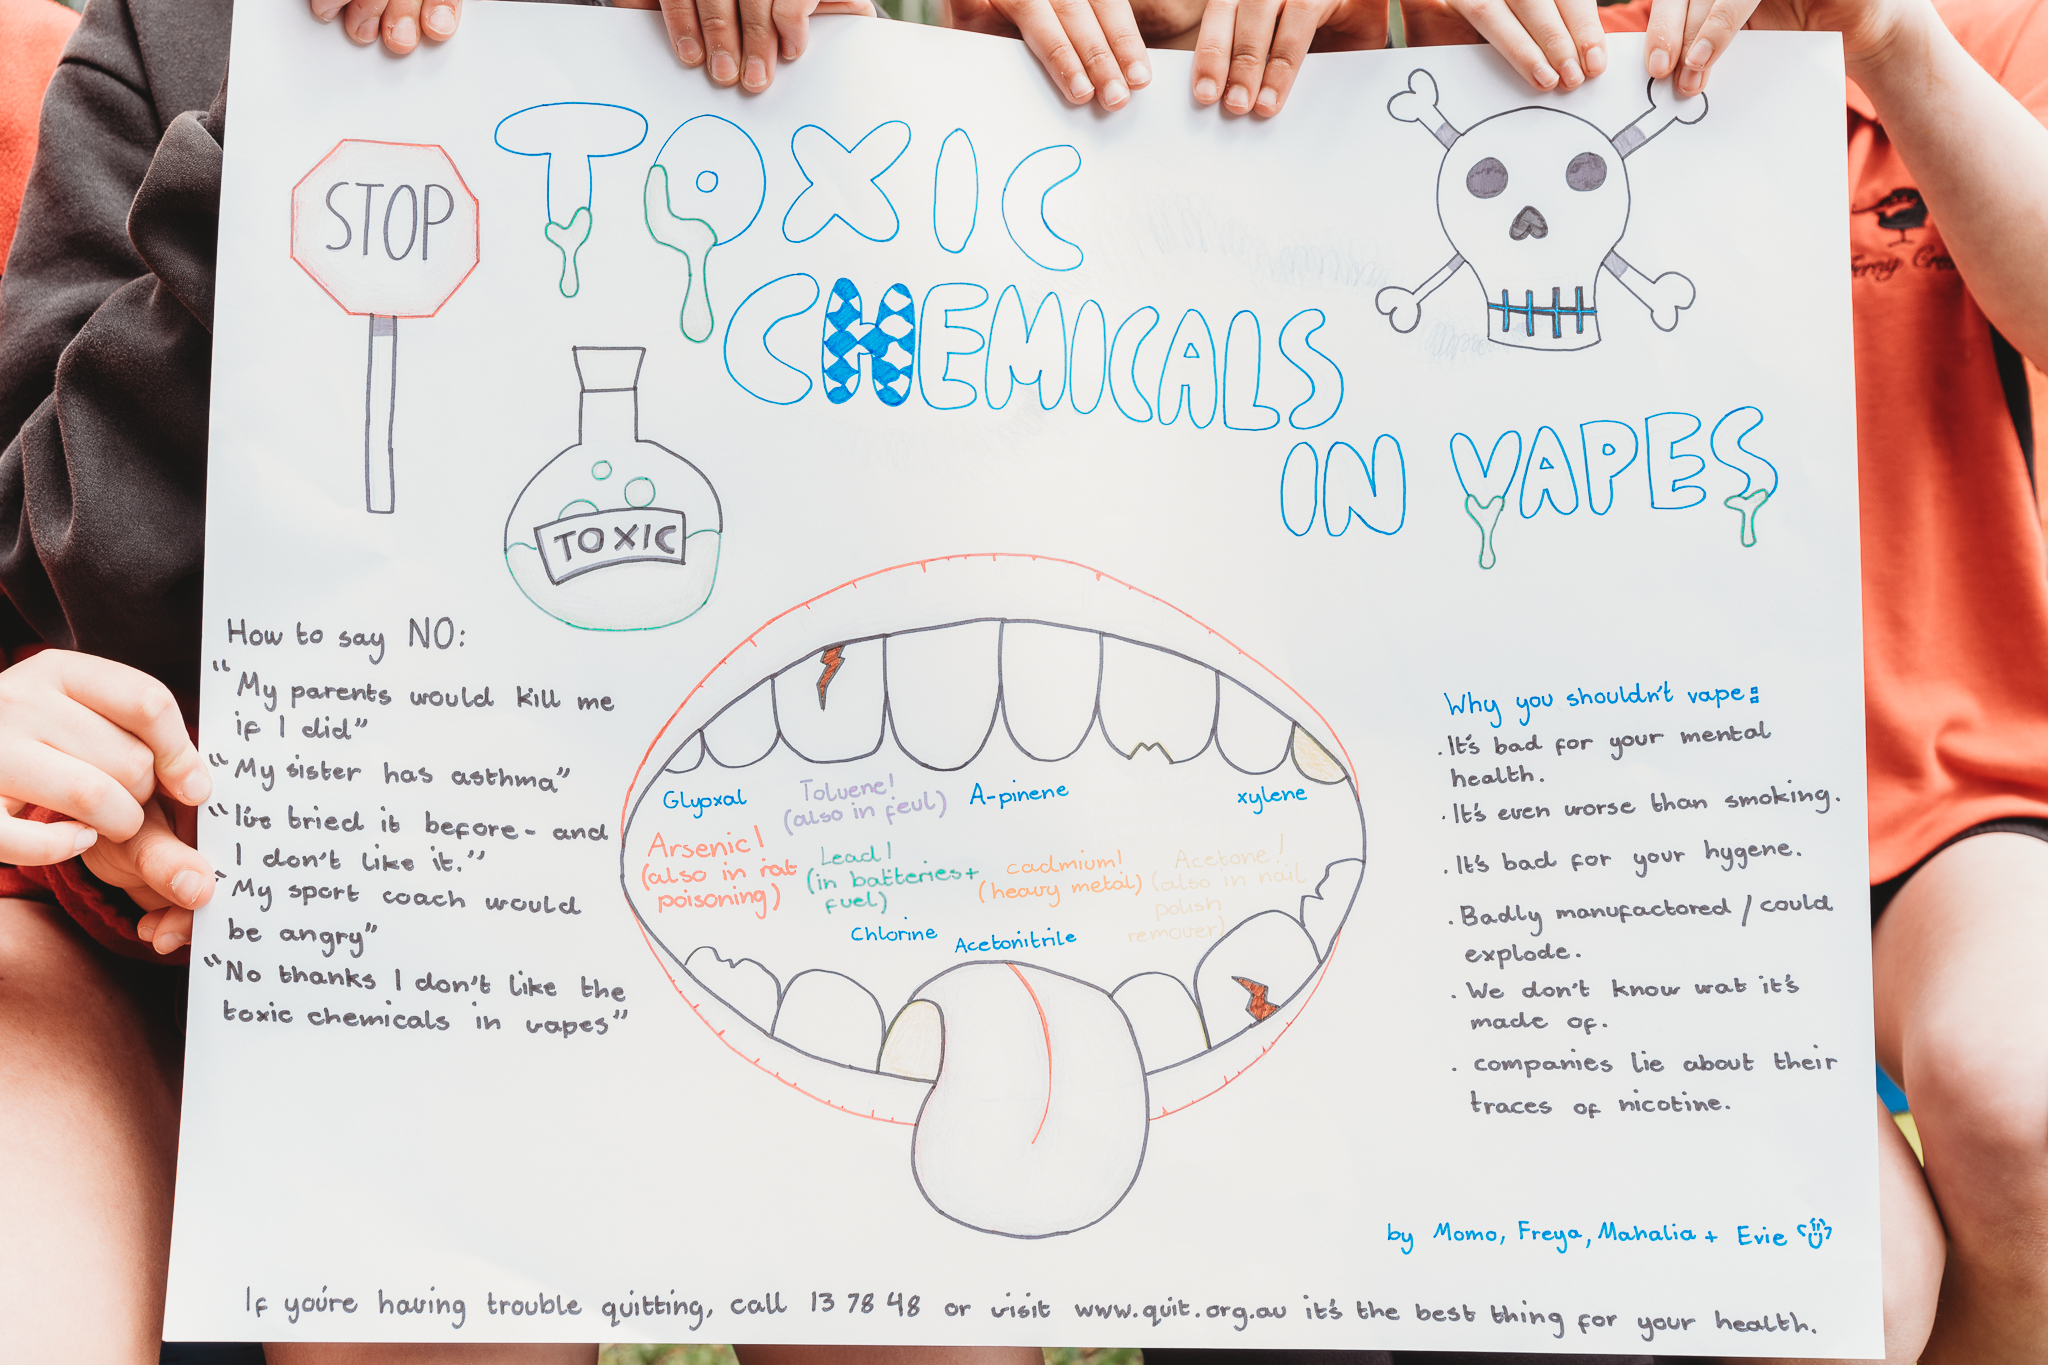 STOP
TOXIC
CHEMICALS
IN VAPES
TOXIC
How to say NO:
"My parents would kill me
if I did"
"My sister has asthma"
"I've tried it before - and
I don't like it."
"My sport coach would
be angry"
"No thanks I don't like the
toxic chemicals in vapes"
Glyoxal
Toluene!
(also in feul)
A-pinene
xylene
Arsenic!
(also in rat
poisoning)
Lead!
(in batteries+
fuel)
cadmium!
(heavy metal)
Acetone!
(also in nail
polish
remover)
Chlorine
Acetonitrile
Why you shouldn't vape:
. It's bad for your mental
health.
. It's even worse than smoking.
. It's bad for your hygene.
. Badly manufactored / could
explode.
. We don't know wat it's
made of.
. companies lie about their
traces of nicotine.
by Momo, Freya, Mahalia + Evie
If you're having trouble quitting, call 13 78 48 or visit www.quit.org.au it's the best thing for your health.